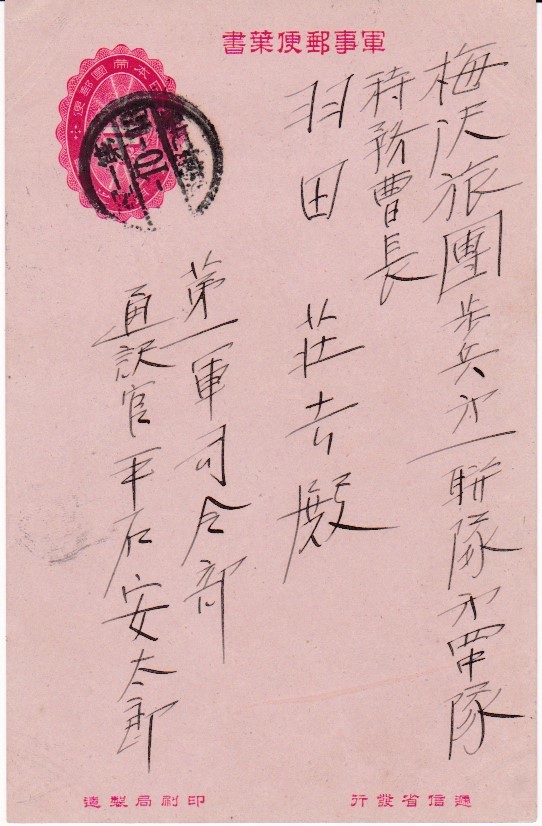 軍事郵便葉書
日本帝國郵便
梅沢旅團歩兵才一聯隊才四中隊
特務曹長
羽田 荘吉殿
第一軍司令部
通訳官平石安太郎
遞信省發行
印刷局製造